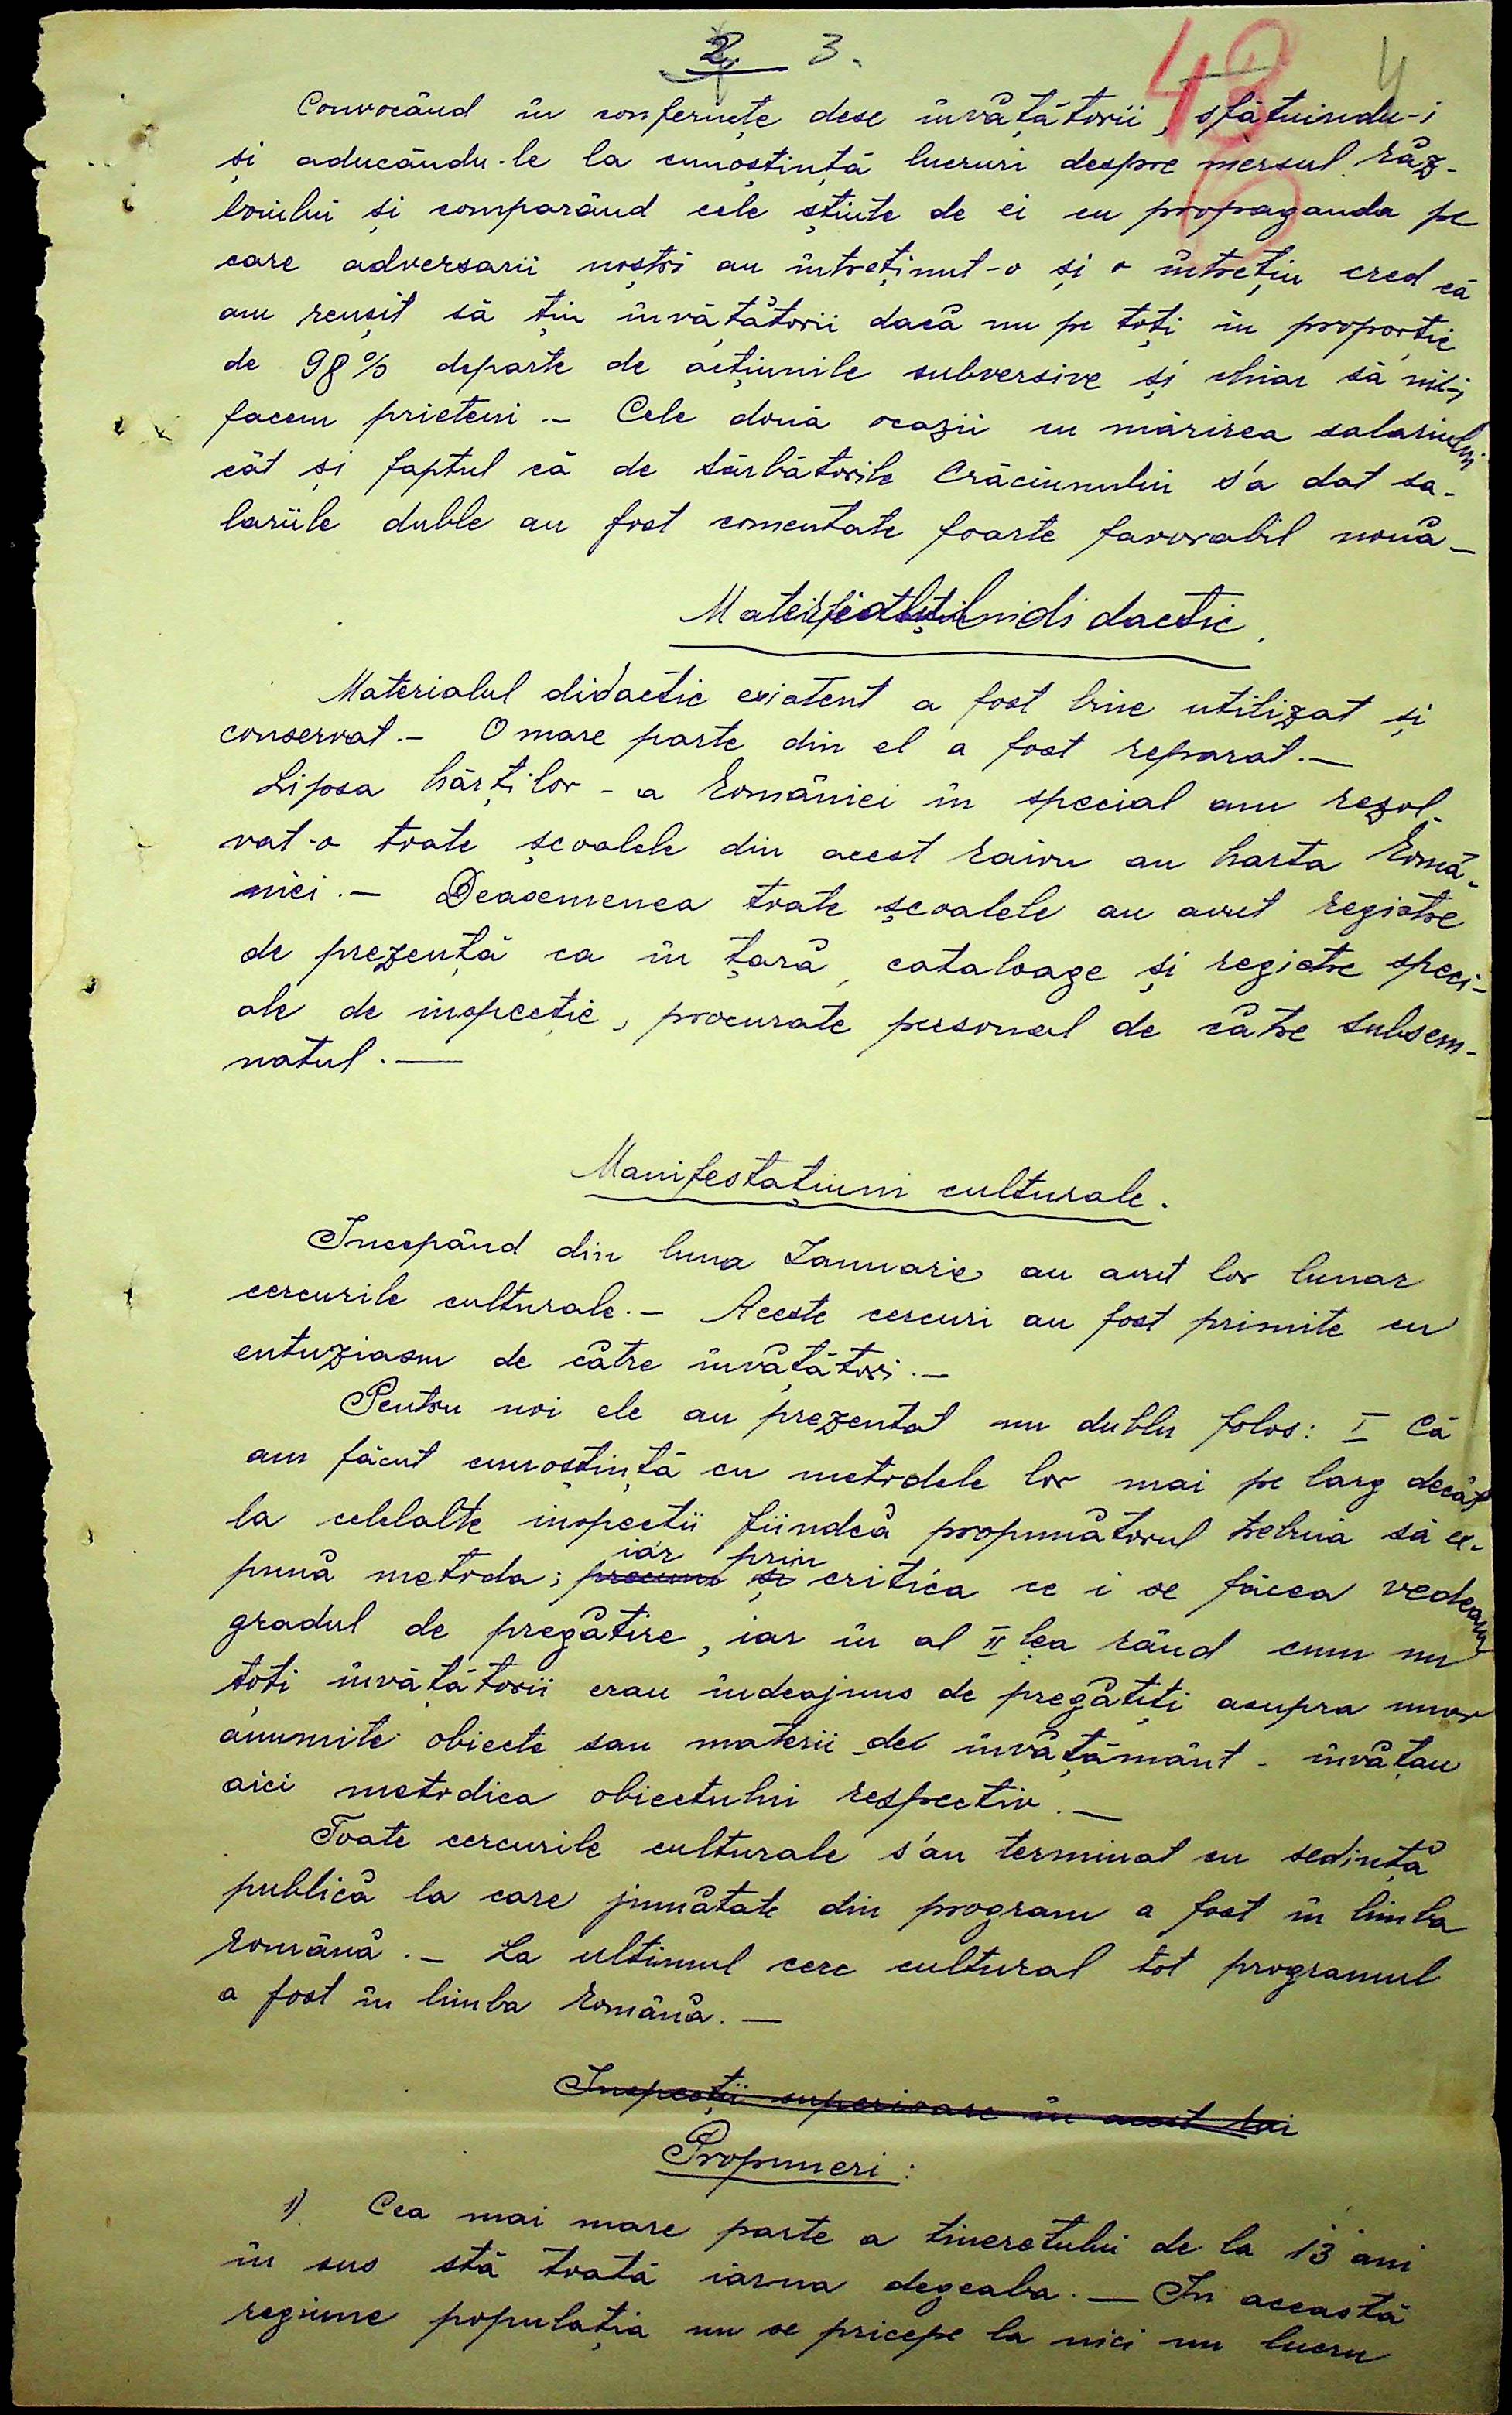 2. 3.
43 4
Convocând în conferințe dese învățătorii, sfătuindu-i
și aducându-le la cunoștință lucruri despre mersul răz-
boiului și comparând cele știute de ei cu propaganda pe
care adversarii noștri au întreținut-o și o întrețin cred că
am reușit să țin învățătorii dacă nu pe toți în proporție
de 98% departe de acțiunile subversive și chiar să ni-i
facem prieteni.- Cele două ocazii cu mărirea salariului
cât și faptul că de sărbătorile Crăciunului s'a dat sa-
lariile duble au fost comentate foarte favorabil nouă-
Material didactic.
Materialul didactic existent a fost bine utilizat și
conservat.- O mare parte din el a fost reparat.-
Lipsa hărților - a României în special am rezol-
vat-o toate școalele din acest raion au harta Româ-
niei.- Deasemenea toate școalele au avut registre
de prezență ca în țară, cataloage și registre speci-
ale de inspecție, procurate personal de către subsem-
natul.-
Manifestațiuni culturale.
Incepând din luna Ianuarie au avut loc lunar
cercurile culturale.- Aceste cercuri au fost primite cu
entuziasm de către învățători.-
Pentru noi ele au prezentat un dublu folos: I Că
am făcut cunoștință cu metodele lor mai pe larg decât
la celelalte inspectii fiindcă propunătorul trebuia să ex-
iar prin
pună metoda; precum și critica ce i se făcea vedeam
gradul de pregătire, iar în al II lea rând cum nu
toți învățătorii erau îndeajuns de pregătiți asupra unor
anumite obiecte sau materii de învățământ - învățau
aici metodica obiectului respectiv.-
Toate cercurile culturale s'au terminat cu sedință
publică la care jumătate din program a fost în limba
română.- La ultimul cerc cultural tot programul
a fost în limba română.-
Inspecții superioare în acest rai
Propuneri:
1) Cea mai mare parte a tineretului de la 13 ani
în sus stă toată iarna degeaba.- In această
regiune populația nu se pricepe la nici un lucru